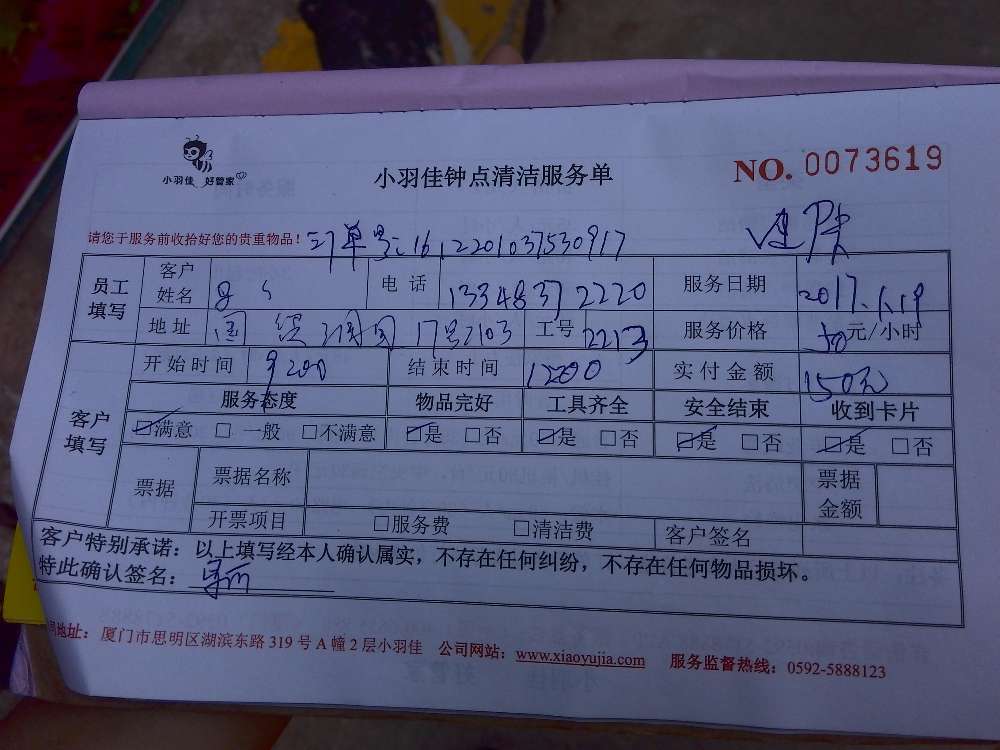 小羽佳 好管家
小羽佳钟点清洁服务单
NO. 0073619
请您于服务前收拾好您的贵重物品！订单号:1612201037530917
员工填写 客户姓名 电话 13348372220 服务日期 2017.1.19
地址 17号2103 工号 2213 服务价格 50元/小时
客户填写 开始时间 9200 结束时间 1200 实付金额 150元
服务态度 物品完好 工具齐全 安全结束 收到卡片
☑满意 □一般 □不满意 ☑是 □否 ☑是 □否 ☑是 □否 ☑是 □否
票据 票据名称 票据金额
开票项目 □服务费 □清洁费 客户签名
客户特别承诺：以上填写经本人确认属实，不存在任何纠纷，不存在任何物品损坏。
特此确认签名：
司地址：厦门市思明区湖滨东路319号A幢2层小羽佳 公司网站：www.xiaoyujia.com 服务监督热线：0592-5888123